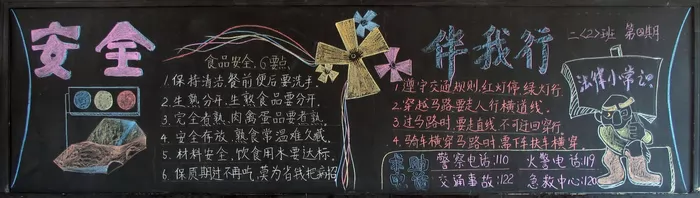 安全
伴我行
二〈2〉班 第四期
食品安全, 6要点
1. 保持清洁, 餐前便后要洗手.
2. 生熟分开, 生熟食品要分开.
3. 完全煮熟, 肉禽蛋品要煮熟.
4. 安全存放, 熟食常温难久藏.
5. 材料安全, 饮食用水要达标.
6. 保质期过不再吃, 莫为省钱把病招
1. 遵守交通规则, 红灯停, 绿灯行.
2. 穿越马路要走人行横道线.
3. 过马路时要走直线, 不可迂回穿行.
4. 骑车横穿马路时, 需下车扶车横穿
法律小常识
求助电话
警察电话: 110
火警电话: 119
交通事故: 122
急救中心: 120